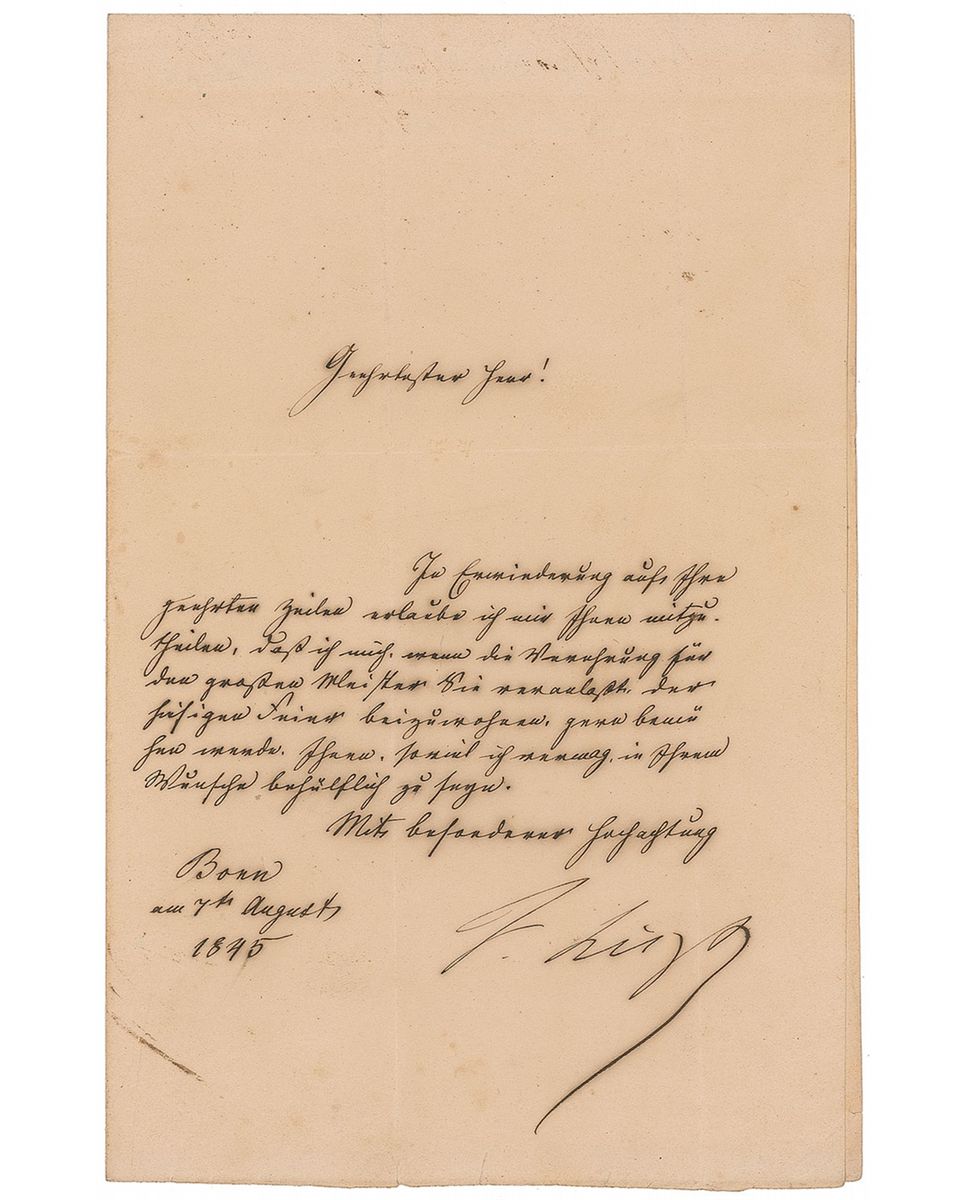 Geehrtester Herr!
In Erwiederung auf Ihre
geehrten Zeilen erlaube ich mir Ihnen mitzu-
theilen, daß ich mich, wenn die Verehrung für
den großen Meister Sie veranlaßt, der
hiesigen Feier beizuwohnen, gern bemü
hen werde, Ihnen, soviel ich vermag, in Ihrem
Wunsche behülflich zu seyn.
Mit besonderer Hochachtung
Bonn
am 7ts August
1845
F. Liszt